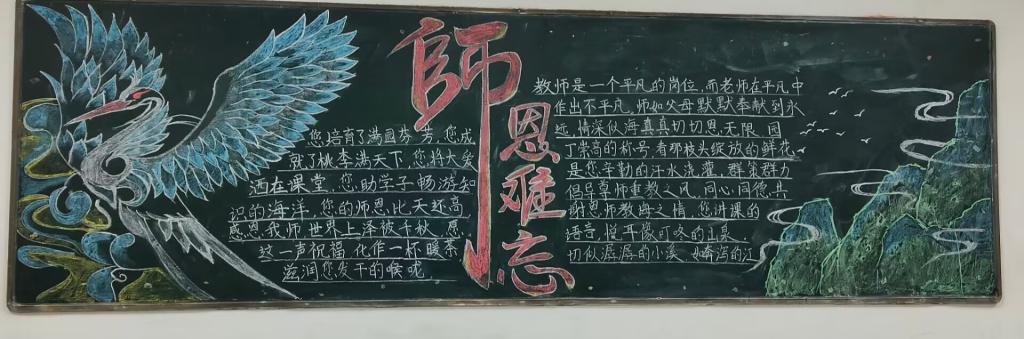 師恩难忘
您培育了满园芬芳,您成
就了桃李满天下,您将大爱
洒在课堂,您助学子畅游知
识的海洋,您的师恩比天还高
感恩我师世界上泽被千秋,愿
这一声祝福化作一杯暖茶
滋润您发干的喉咙
教师是一个平凡的岗位,而老师在平凡中
作出不平凡,师如父母默默奉献到永
远,情深似海真真切切恩无限,园
丁崇高的称号看那枝头绽放的鲜花,
是您辛勤的汗水浇灌,群策群力
倡导尊师重教之风,同心同德,共
谢恩师教诲之情,您讲课的
语言,悦耳像叮咚的山泉,
切似潺潺的小溪、如奔泻的江